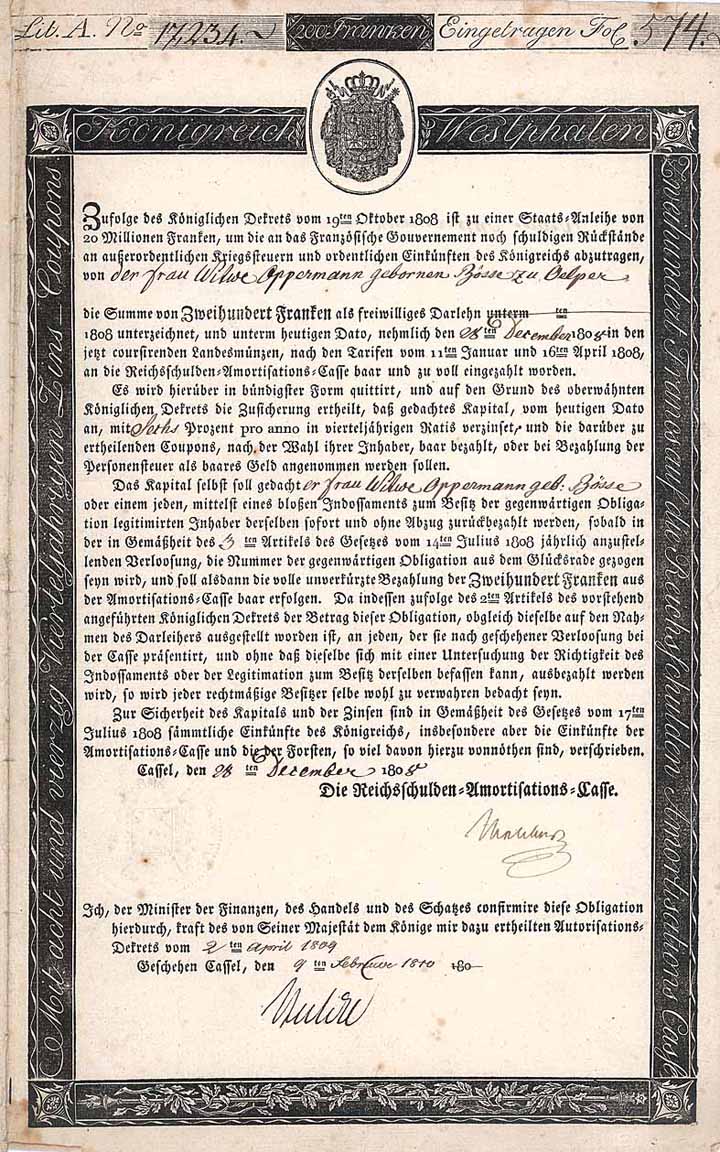 Lit. A. No 17,234. 200 Franken Eingetragen Fol 574.
Königreich Westphalen
Mit acht und vierzig Vierteljährigen Zins-Coupons
Zweihundert Franks auf die Reichsschulden Amortisations Casse
Zufolge des Königlichen Dekrets vom 19ten Oktober 1808 ist zu einer Staats-Anleihe von
20 Millionen Franken, um die an das Französische Gouvernement noch schuldigen Rückstände
an außerordentlichen Kriegssteuern und ordentlichen Einkünften des Königreichs abzutragen,
von der Frau Witwe Oppermann gebornen Bösse zu Oelper
die Summe von Zweihundert Franken als freiwilliges Darlehn unterm ten
1808 unterzeichnet, und unterm heutigen Dato, nehmlich den 28ten December 1808 in den
jetzt coursirenden Landesmünzen, nach den Tarifen vom 11ten Januar und 16ten April 1808,
an die Reichsschulden-Amortisations-Casse baar und zu voll eingezahlt worden.
Es wird hierüber in bündigster Form quittirt, und auf den Grund des oberwähnten
Königlichen Dekrets die Zusicherung ertheilt, daß gedachtes Kapital, vom heutigen Dato
an, mit Sechs Prozent pro anno in vierteljährigen Ratis verzinset, und die darüber zu
ertheilenden Coupons, nach der Wahl ihrer Inhaber, baar bezahlt, oder bei Bezahlung der
Personensteuer als baares Geld angenommen werden sollen.
Das Kapital selbst soll gedachter Frau Witwe Oppermann geb. Bösse
oder einem jeden, mittelst eines bloßen Indossaments zum Besitz der gegenwärtigen Obliga-
tion legitimirten Inhaber derselben sofort und ohne Abzug zurückbezahlt werden, sobald in
der in Gemäßheit des 3 ten Artikels des Gesetzes vom 14ten Julius 1808 jährlich anzustel-
lenden Verloosung, die Nummer der gegenwärtigen Obligation aus dem Glücksrade gezogen
seyn wird, und soll alsdann die volle unverkürzte Bezahlung der Zweihundert Franken aus
der Amortisations-Casse baar erfolgen. Da indessen zufolge des 2ten Artikels des vorstehend
angeführten Königlichen Dekrets der Betrag dieser Obligation, obgleich dieselbe auf den Nah-
men des Darleihers ausgestellt worden ist, an jeden, der sie nach geschehener Verloosung bei
der Casse präsentirt, und ohne daß dieselbe sich mit einer Untersuchung der Richtigkeit des
Indossaments oder der Legitimation zum Besitz derselben befassen kann, ausbezahlt werden
wird, so wird jeder rechtmäßige Besitzer selbe wohl zu verwahren bedacht seyn.
Zur Sicherheit des Kapitals und der Zinsen sind in Gemäßheit des Gesetzes vom 17ten
Julius 1808 sämmtliche Einkünfte des Königreichs, insbesondere aber die Einkünfte der
Amortisations-Casse und die der Forsten, so viel davon hierzu vonnöthen sind, verschrieben.
Cassel, den 28 ten December 1808
Die Reichsschulden-Amortisations-Casse.
Ich, der Minister der Finanzen, des Handels und des Schatzes confirmire diese Obligation
hierdurch, kraft des von Seiner Majestät dem Könige mir dazu ertheilten Autorisations-
Dekrets vom 2 ten April 1809
Geschehen Cassel, den 9 ten Februar 1810 180